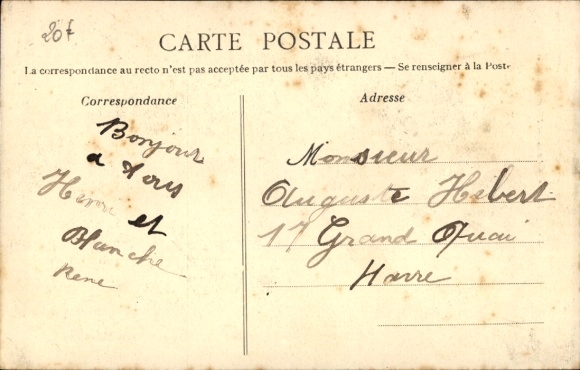 20f
CARTE POSTALE
La correspondance au recto n'est pas acceptée par tous les pays étrangers — Se renseigner à la Poste
Correspondance
Bonjour
a tous
Henri et
Blanche
René
Adresse
Monsieur
Auguste Hebert
17 Grand Quai
Havre